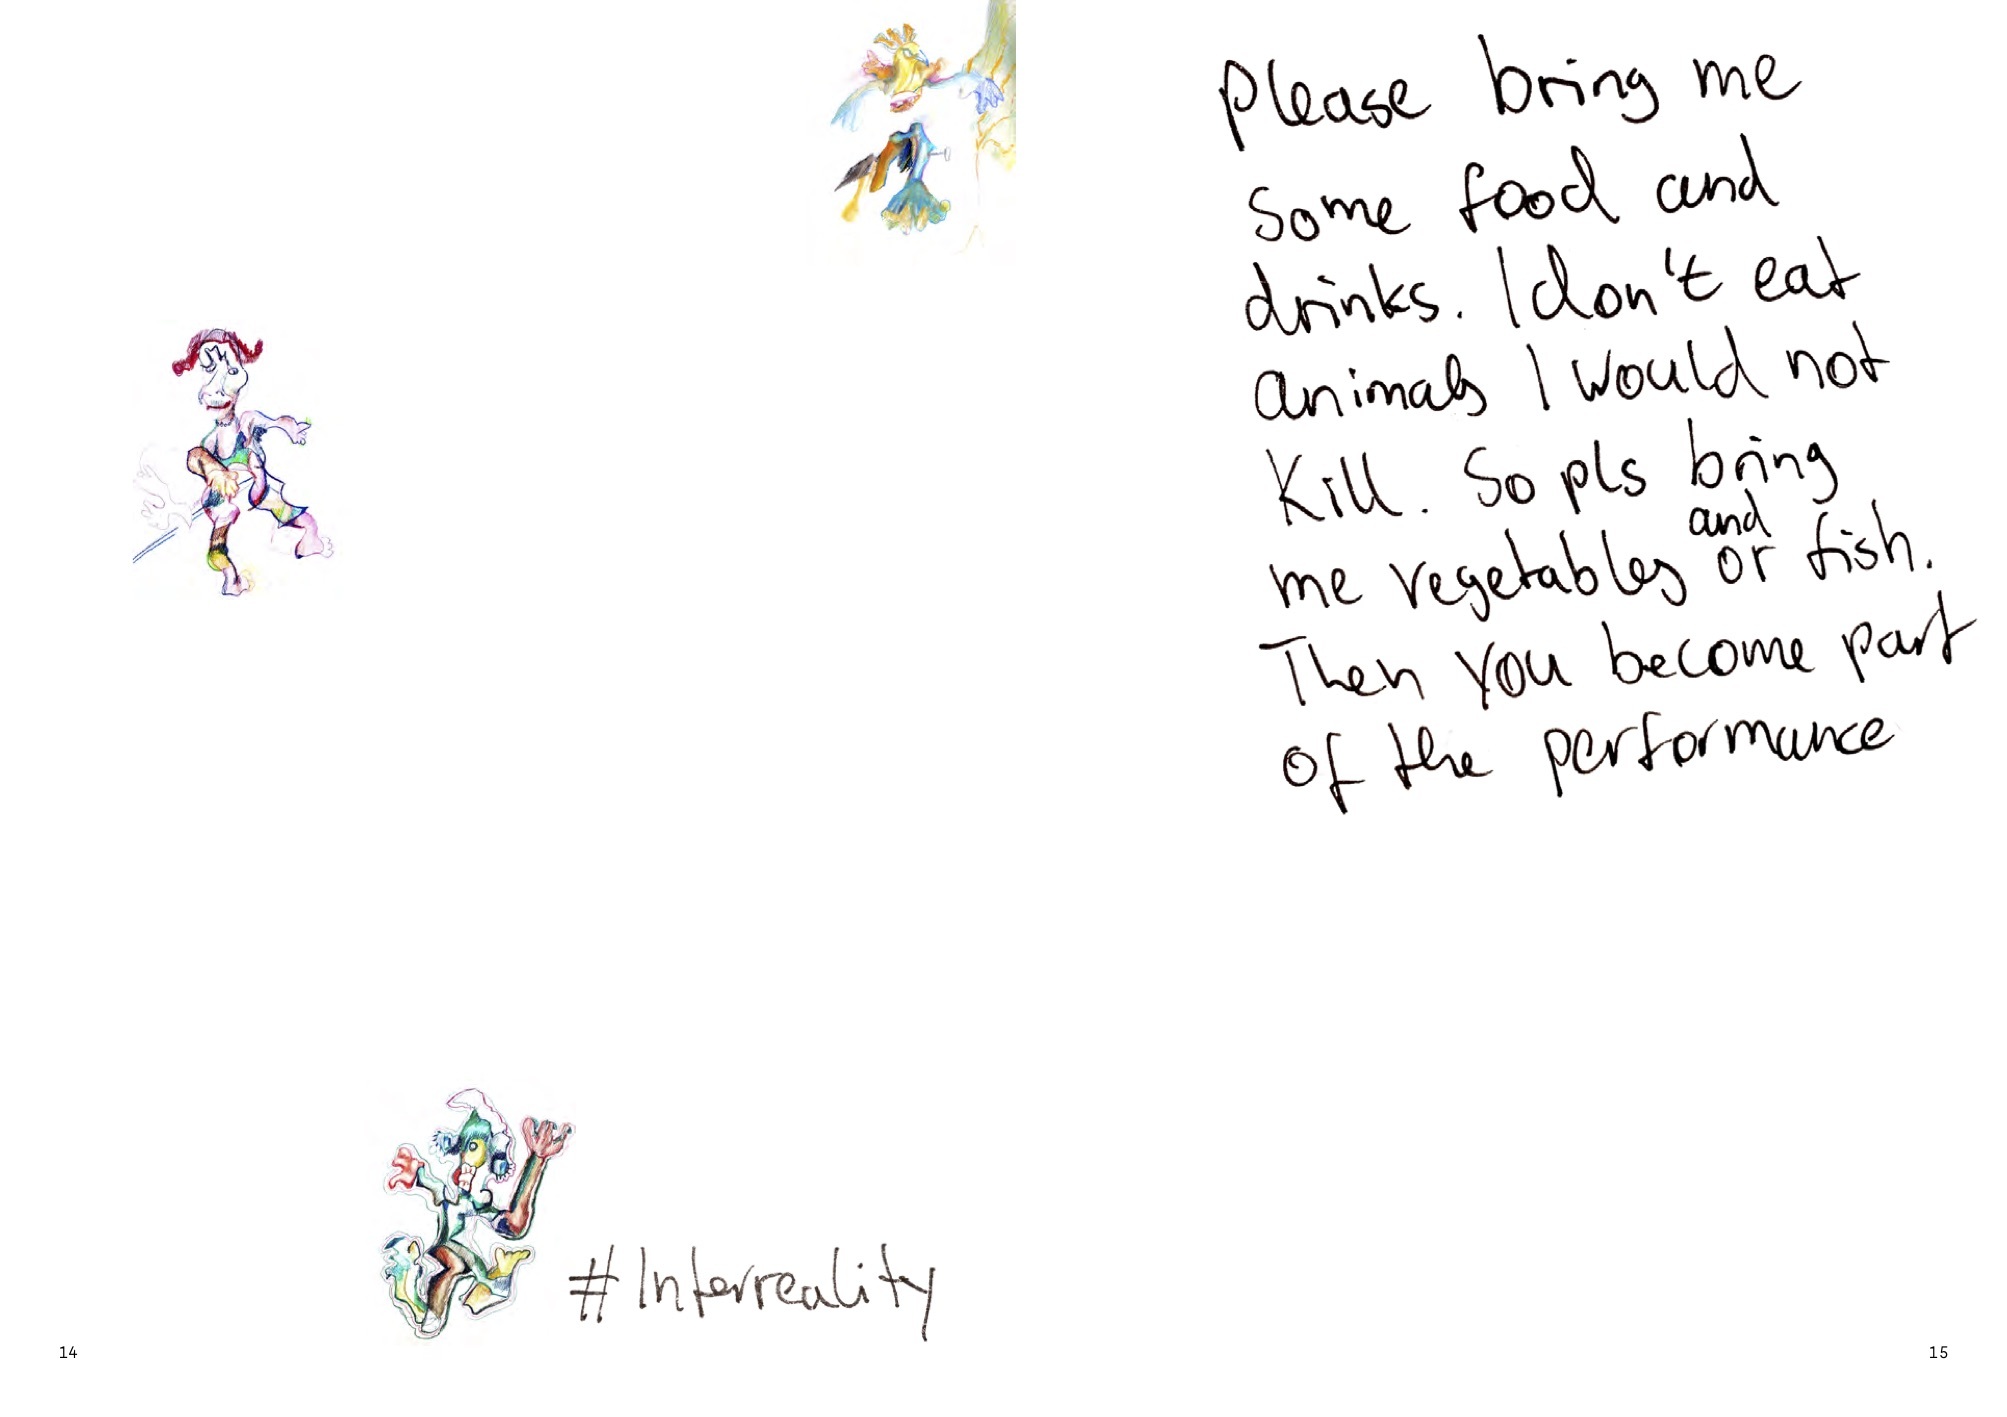 #Interreality
14
Please bring me
some food and
drinks. I don't eat
animals I would not
Kill. So pls bring
and
me vegetables or fish.
Then you become part
of the performance
15